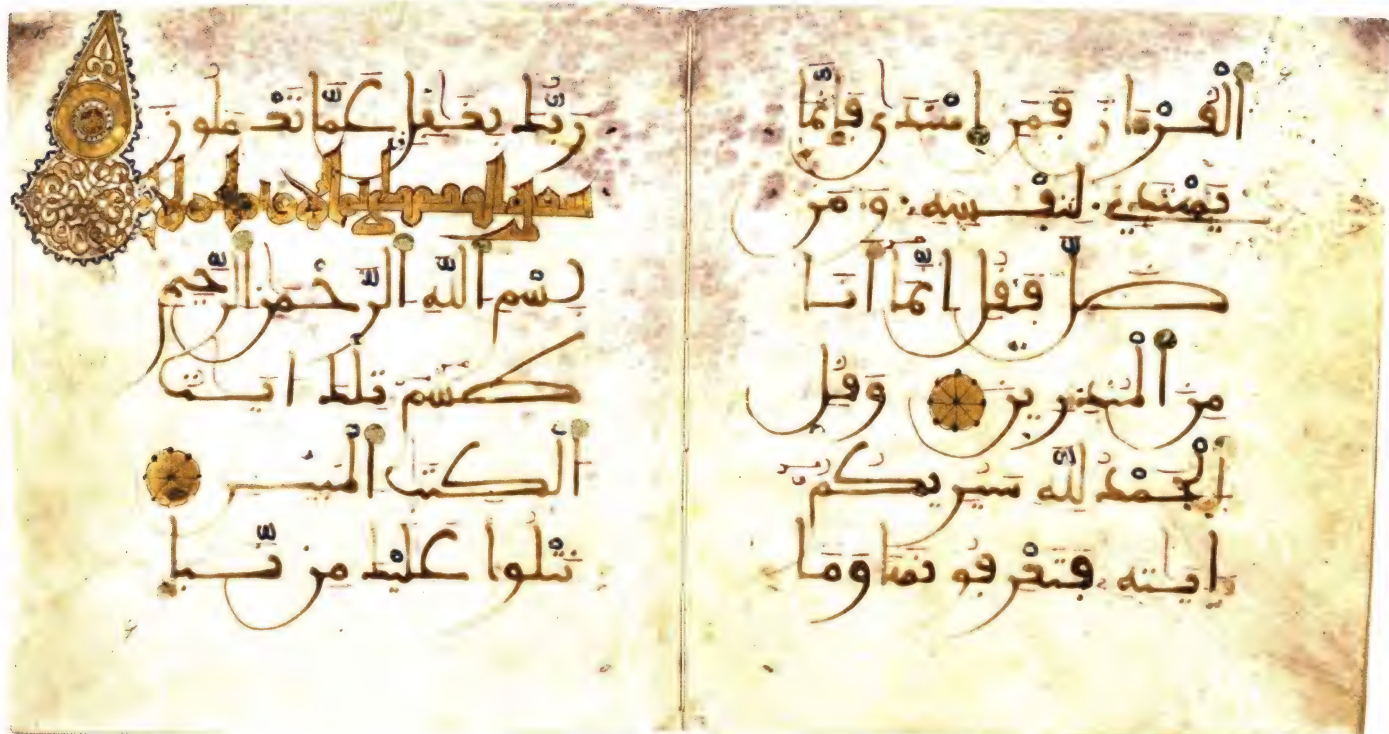 ٱلْقُرْءَانَ فَمَنِ ٱهْتَدَىٰ فَإِنَّمَا
يَهْتَدِى لِنَفْسِهِۦ وَمَن
ضَلَّ فَقُلْ إِنَّمَآ أَنَا
مِنَ ٱلْمُنذِرِينَ وَقُلِ
ٱلْحَمْدُ لِلَّهِ سَيُرِيكُمُۥٓ
ءَايَٰتِهِۦ فَتَعْرِفُونَهَا وَمَا
رَبُّكَ بِغَٰفِلٍ عَمَّا تَعْمَلُونَ
سورة القصص
بِسْمِ ٱللَّهِ ٱلرَّحْمَٰنِ ٱلرَّحِيمِ
طسٓمٓ تِلْكَ ءَايَٰتُ
ٱلْكِتَٰبِ ٱلْمُبِينِ
نَتْلُوا۟ عَلَيْكَ مِن نَّبَإِ